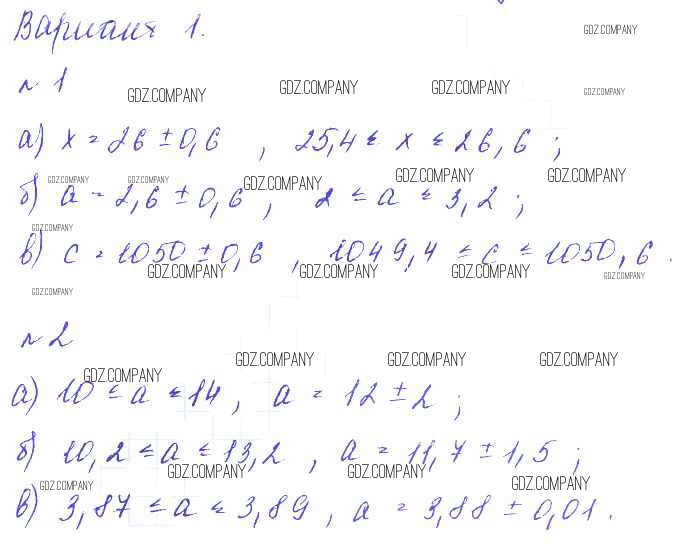 Вариант 1.
GDZ.COMPANY
№1
GDZ.COMPANY GDZ.COMPANY GDZ.COMPANY GDZ.COMPANY
а) x = 26 ± 0,6 , 25,4 ≤ x ≤ 26,6 ;
GDZ.COMPANY GDZ.COMPANY GDZ.COMPANY GDZ.COMPANY GDZ.COMPANY
б) a = 2,6 ± 0,6 , 2 ≤ a ≤ 3,2 ;
GDZ.COMPANY
в) c = 1050 ± 0,6 , 1049,4 ≤ c ≤ 1050,6 .
GDZ.COMPANY GDZ.COMPANY GDZ.COMPANY GDZ.COMPANY
GDZ.COMPANY
№2
GDZ.COMPANY GDZ.COMPANY GDZ.COMPANY GDZ.COMPANY
а) 10 ≤ a ≤ 14 , a = 12 ± 2 ;
б) 10,2 ≤ a ≤ 13,2 , a = 11,7 ± 1,5 ;
GDZ.COMPANY GDZ.COMPANY GDZ.COMPANY GDZ.COMPANY
в) 3,87 ≤ a ≤ 3,89 , a = 3,88 ± 0,01 .